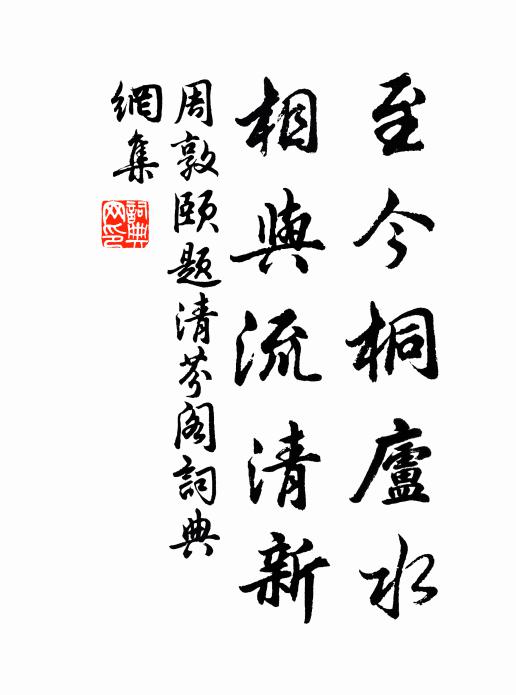 至今桐廬水
相與流清新
周敦頤題清芬阁詞典
網集
詞典
网印